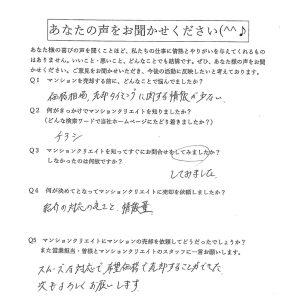 あなたの声をお聞かせください(^^♪
あなた様の喜びの声を聞くことほど、私たちの仕事に情熱とやりがいを与えてくれるもの
はありません。いいこと・悪いこと、どんなことでも結構です。ぜひ、あなた様の声をお聞
かせください。ご意見をお聞かせいただき、今後の活動に反映したいと考えております。
Q1 マンションを売却する前に、どんなことで悩んでましたか?
価格相場、売却タイミングに関する情報が少ない
Q2 何がきっかけでマンションクリエイトを知りましたか?
(どんな検索ワードで当社ホームページにたどり着きましたか?)
チラシ
Q3 マンションクリエイトを知ってすぐにお問合せをしてみましたか?
しなかったのは何故ですか?
してみました
Q4 何が決めてとなってマンションクリエイトに売却を依頼しましたか?
紹介の対応の良さと、情報量
Q5 マンションクリエイトにマンションの売却を依頼してどうだったでしょうか?
また営業担当・皆様とマンションクリエイトのスタッフに一言お願いします。
スムーズな対応で希望価格で売却することができた
次もよろしくお願いします